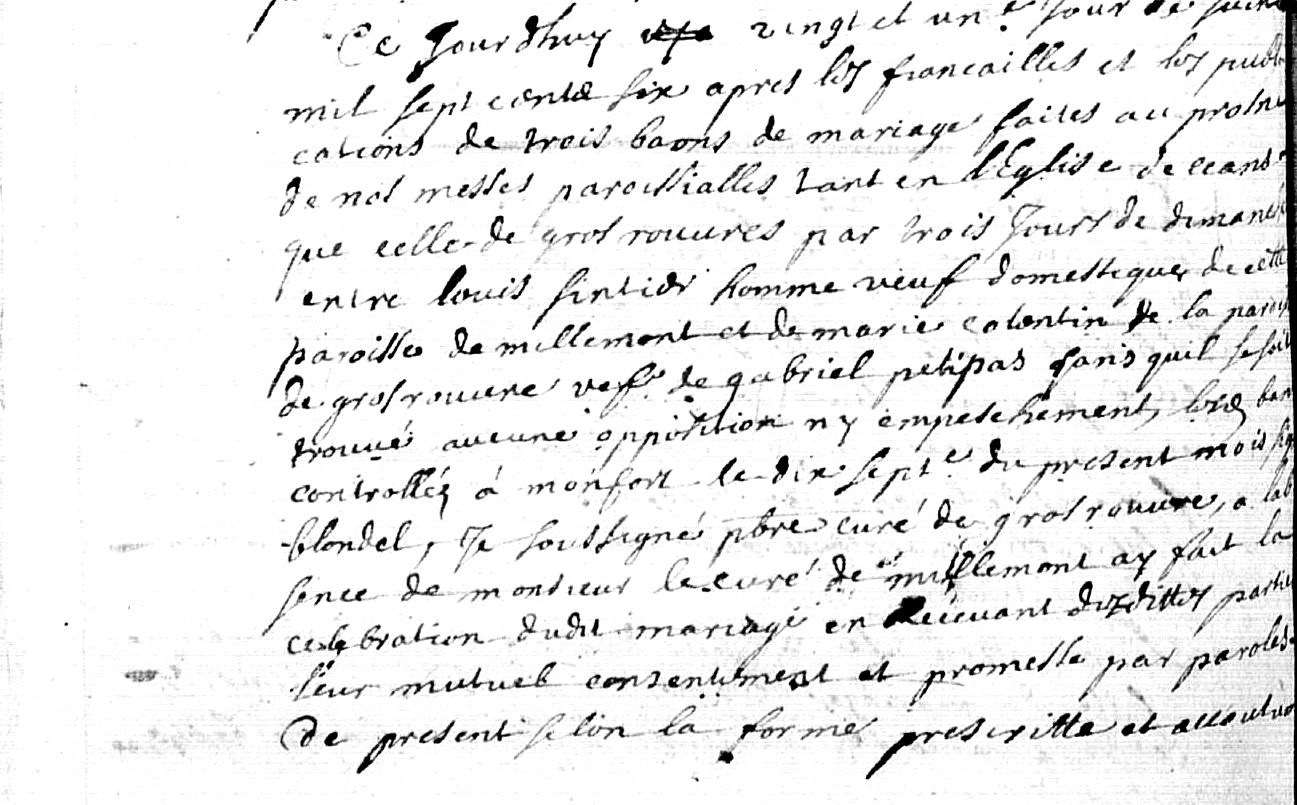 Ce Jourdhuy vingt et un.e Jour de Juin
mil sept cente six apres les fiancailles et les publi
cations de trois baons de mariage faites au prosne
de nos messes paroissialles tant en lEglise de ceans
que celle de gros rouures par trois Jours de dimanch
entre louis sintier homme veuf domestique de cette
paroisse de millemont et de marie colentin de la paroiss
de gros rouure vefe de gabriel petipas sans quil se soit
trouué aucune opposition ny empeschement, lesd ban
controlléz á monfort le dix septe du present mois sig
blondel, Je soussigné pbre curé de gros rouure, a lab
sence de monsieur le curé de millemont ay fait la
celebration dudit mariage en Receuant dezdittes partie
leur mutuel consentement et promesse par paroles
de present selon la forme prescritte et